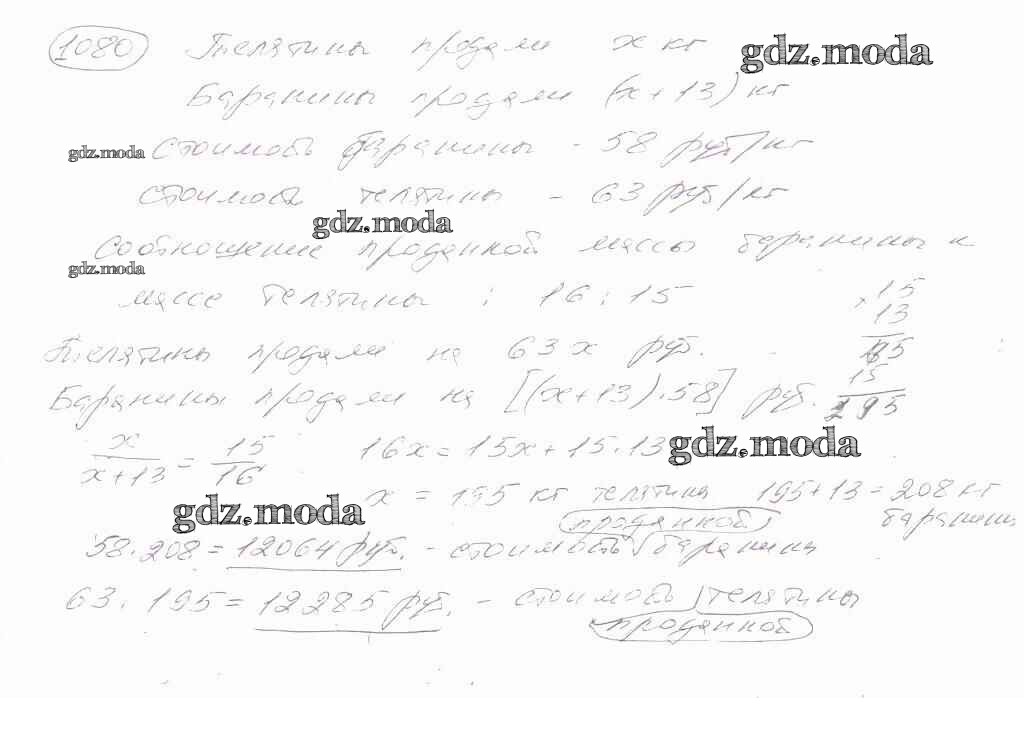 1080 Телятины продали x кг
gdz.moda
Баранины продали (x+13) кг
gdz.moda
Стоимость баранины - 58 руб/кг
стоимость телятины - 63 руб/кг
gdz.moda
Соотношение проданной массы баранины к
gdz.moda
массе телятины : 16 : 15
15
13
Телятины продали на 63x руб.
45
Баранины продали на [(x+13)·58] руб.
15
195
x/x+13 = 15/16 16x = 15x + 15·13
gdz.moda
x = 195 кг телятина 195+13 = 208 кг баранины
gdz.moda
проданной
58·208 = 12064 руб. - стоимость баранины
63·195 = 12285 руб. - стоимость телятины
проданной